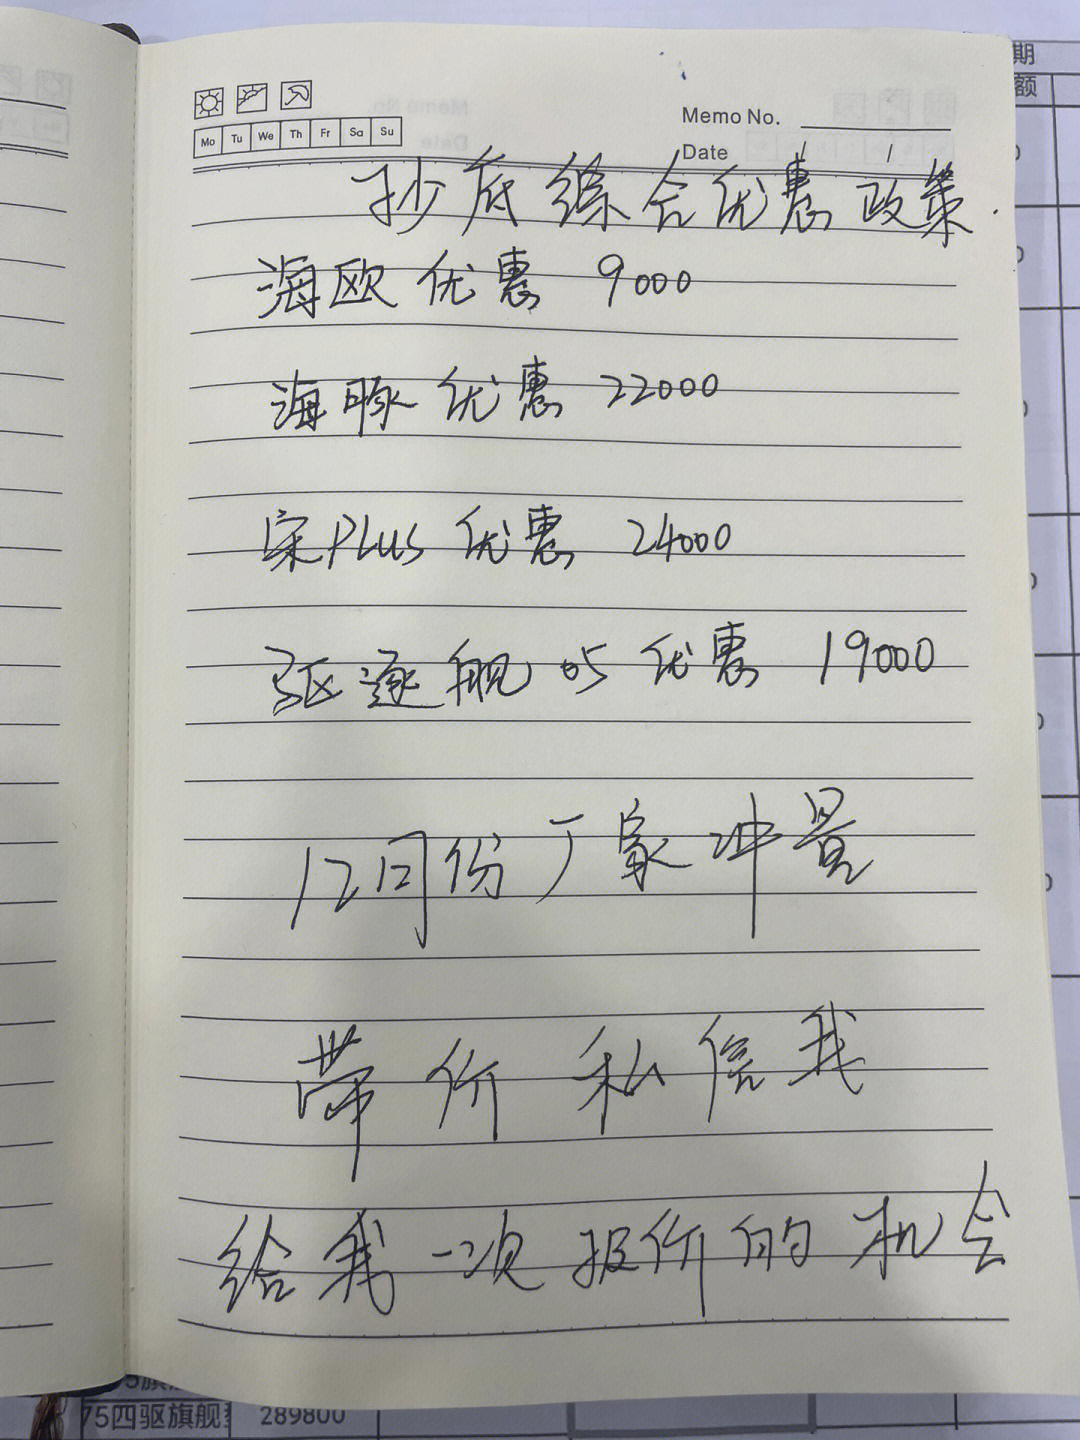 Memo No.
Mo Tu We Th Fr Sa Su
Date / /
抄底综合优惠政策
海欧优惠 9000
海豚优惠 22000
宋PLUS优惠 24000
驱逐舰05优惠 19000
12月份厂家冲量
带价私信我
给我一次报价的机会
期
额
75四驱旗舰 289800